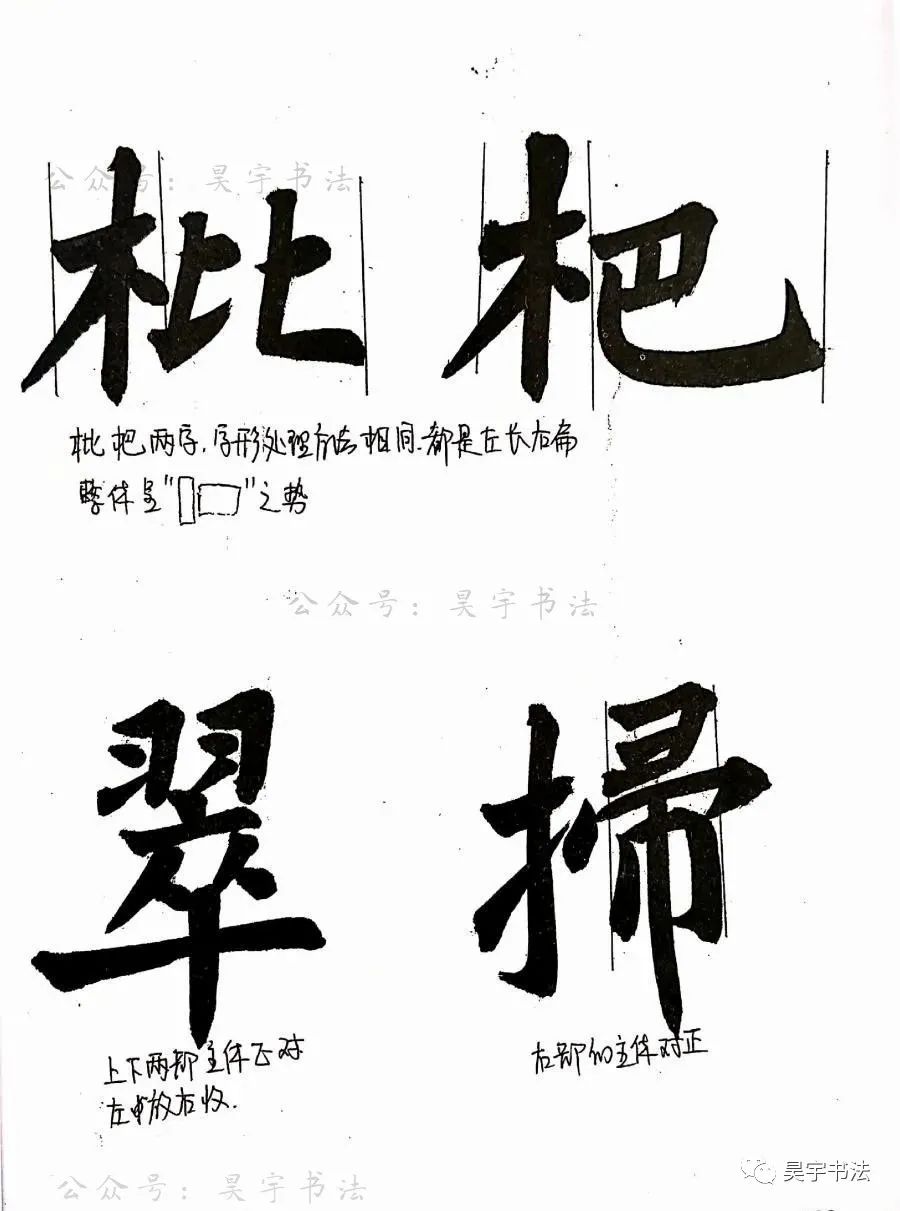 公众号：昊宇书法
枇杷
枇杷两字，字形处理方法相同，都是左长右扁
整体呈"▯▭"之势
公众号：昊宇书法
翠掃
上下两部主体正对
左放右收．
右部的主体对正
昊宇书法
公众号：昊宇书法